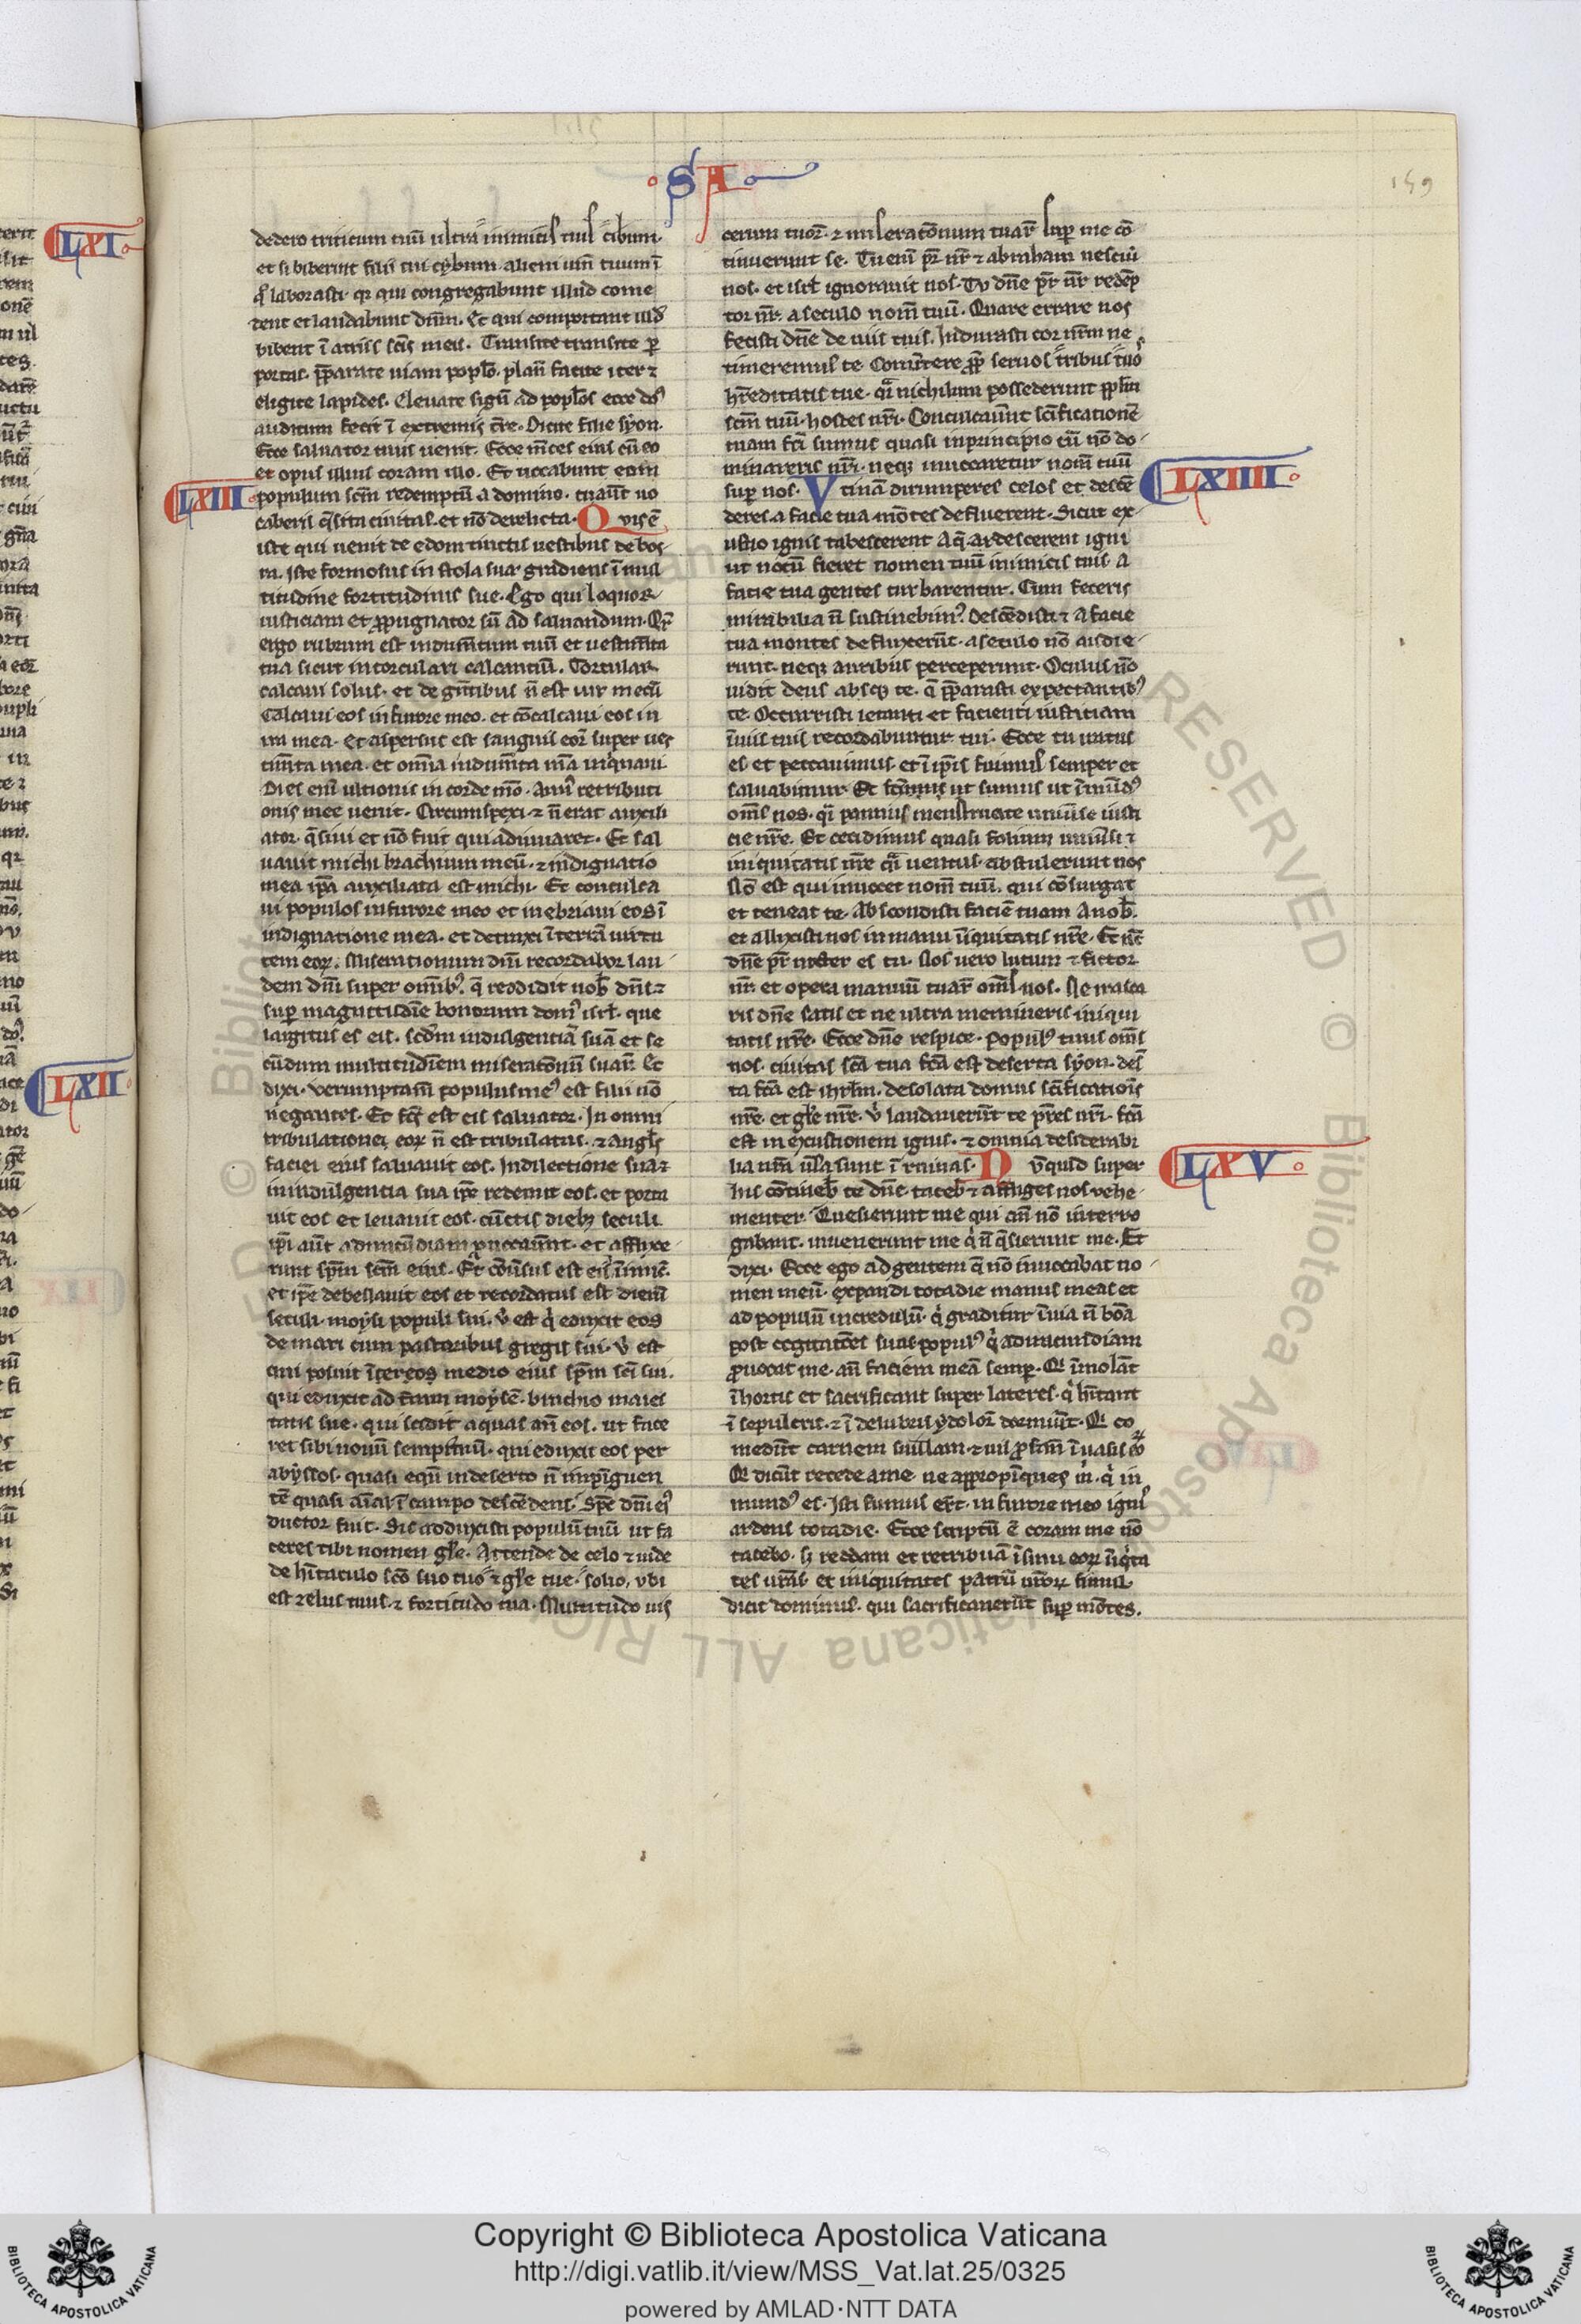 SA
159
dedero triticum tuū ultra inimicis tuis cibum.
et si biberint filii tui cybum alieni uinū tuum ī
q̄ laborasti. qr qui congregabunt illud come
dent et laudabunt dn̄m. Et qui comportant illd̄
bibent ī atriis sc̄is meis. Transite transite ꝑ
portas. p̄parate uiam popl̄o. planū facite iter ⁊
eligite lapides. Eleuate signū ad popl̄os ecce dn̄s
auditum fecit ī extremis tr̄e. Dicite filie syon.
Ecce saluator tuus uenit. Ecce m̄ces eius cū eo
et opus illius coram illo. Et uocabunt eom
LXIII populum sc̄m redemptū a domino. tu aūt uo
caberis q̄sita ciuitas. et nō derelicta. Quis ē
iste qui uenit de edom tinctis uestibus de bos
ra. Iste formosus in stola sua gradiens ī mul
titudine fortitudinis sue. Ego qui loquor
iusticiam et ꝓpugnator sū ad saluandum. Qr̄
ergo rubrum est indumn̄tum tuū et uestim̄ta
tua sicut in torculari calcantiū. Torcular
calcaui solus. et de gn̄tibus n̄ est uir mecū
Calcaui eos in furore meo. et cōcalcaui eos in
ira mea. Et aspersus est sanguis eor̄ super ues
tim̄ta mea. et om̄ia indum̄ta m̄a inq̇naui
Dies enī ultionis in corde m̄o. Ann̄ retributi
onis mee uenit. Circumspexi. ⁊ n̄ erat auxili
ator. q̄siui et nō fuit qui adiuuaret. Et sal
uauit michi brachium meū. ⁊ indignatio
mea ip̄a auxiliata est michi. Et conculca
ui populos in furore meo et inebriaui eos ī
indignatione mea. et detraxi ī terrā uirtu
tem eoꝝ. Miserationum dn̄i recordabor lau
dem dn̄i super om̄ibꝰ. q̄ reddidit nob̄ dn̄s ⁊
suꝑ magnitudīe bonorum domꝰ isrl̄. que
largitus es eis. scdm̄ indulgentiā suā et se
cūdum multitudīem miseratōnū suar̄. Et
dixi. uerumptam̄ populus meꝰ est filii nō
negantes. Et fc̄s est eis saluator. In omni
tribulatione eoꝝ n̄ est tribulatus. ⁊ angl̄s
faciei eius saluauit eos. In dilectione sua ⁊
in indulgentia sua ip̄e redemit eos. et porta
uit eos et leuauit eos. cūctis diebꝫ seculi
ip̄i aūt ad iracūdiam prouocauer̄t. et afflixe
runt spm̄ sc̄m eius. Et cōuersus est eis ī inimic̄.
et ip̄e debellauit eos et recordatus est dierū
seculi. moysi populi sui. ubi est q̇ eduxit eos
de mari cum pastoribus gregis sui. ubi est
qui posuit ī medio eius spm̄ sc̄i sui.
qui eduxit ad dextram moysē. brachio maies
tatis sue. qui scidit aquas an̄ eos. ut face
ret sibi nomē sempit̄nū. qui eduxit eos per
abyssos. quasi equū in deserto n̄ impinguen
tē quasi aīal ī campo descēdent. Sp̄e dn̄i eiꝰ
ductor fuit. Sic adduxisti populū tuū ut fa
ceres tibi nomen gl̄e. Attende de celo ⁊ uide
de hītaculo sc̄o suo tuo ⁊ gl̄e tue solio. ubi
est zelus tuus ⁊ fortitudo tua. Multitudo uis
cerum tuor̄. ⁊ miseratōnum tuar̄ suꝑ me cō
tinuerunt se. Tu enī pr̄ nr̄ ⁊ abraham nesciuī
nos. et isrl̄ ignorauit nos. Tu dn̄e pr̄ nr̄ redēp
tor nr̄. a seculo nom̄ tuū. Quare errare nos
fecisti dn̄e de uiis tuis. Indurasti cor nr̄m ne
timeremus te. Conūtere ꝓp̄ seruos tribus tuo
hr̄editatis tue. q̄ nichilum possederunt ppl̄m
sc̄m tuū. hostes nr̄i. Conculcauer̄t sc̄ificationē
tuam fc̄i sumus quasi in principio cū nō do
minareris nr̄i. neqꝫ inuocaretur nom̄ tuū
LXIIII suꝑ nos. Utinā dirumperes celos et descē
deres. a facie tua mōtes defluerent. Sicut ex
ustio ignis tabescerent Aq̄. ardescerent igni
ut notū fieret nomen tuū inimicis tuis A
facie tua gentes turbarentur. Cum feceris
mirabilia n̄ sustinebimꝰ. Descēdisti ⁊ a facie
tua montes defluxerūt. a seculo nō audie
runt. neqꝫ auribus perceperunt. Oculus nō
uidit deus absqꝫ te. q̄ p̄parasti expectantibꝰ
te. Occurristi letanti et facienti iustitiam
ī uiis tuis recordabuntur tui. Ecce tu iratus
es et peccauimus et ī ip̄is fuimus semper et
saluabimur. Et fc̄i sumus ut īmūdꝰ
om̄s nos. q̄i pannus menstruate uniūse iusti
cie nr̄e. Et cecidimus quasi folium uniūsi ⁊
iniquitatis nr̄e q̄i uentus abstulerunt nos
Nō est qui inuocet nom̄ tuū. qui cōsurgat
et teneat te. Abscondisti faciē tuam a nob̄.
et allixisti nos in manu iniquitatis nr̄e. Et nc̄
dn̄e pr̄ noster es tu. Nos uero lutum ⁊ fictor
nr̄. et opera manuū tuar̄ om̄s nos. Ne irasca
ris dn̄e satis et ne ultra memineris iniqui
tatis nr̄e. Ecce dn̄e respice. Populꝰ tuus om̄s
nos. ciuitas sc̄i tua fc̄a est deserta syon. des̄
ta fc̄a est ihrl̄m. desolata domus sc̄ificationis
nr̄e. et gl̄e nr̄e. ubi laudauerūt te pr̄es nr̄i. fc̄a
est in exustionem ignis. ⁊ omnia desiderabi
LXV lia nr̄a ūsa sunt ī ruinas. Nūquid super
his cōtineb̄ te dn̄e. taceb̄ ⁊ affliges nos uehe
menter. Quesierunt me qui an̄ nō interro
gabant. inuenerunt me q̇ n̄ q̄sierunt me. Et
dixi. Ecce ego ad gentem q̄ nō inuocabat no
men meū. expandi tota die manus meas et
ad populū incredulū. q̇ graditur ī uia n̄ bōa
post cogitatōes suas. populꝰ q̇ ad iracundiam
ꝓuocat me. an̄ faciem meā semꝑ. Qi īmolāt
ī hortis et sacrificant super lateres. q̇ hītant
ī sepulcris. ⁊ ī delubris ydolor̄ dormiūt. Qi co
medūt carnem suillam. ⁊ ius ꝓfanū ī uasis eoꝝ
Qi dicūt recede a me ne appropīques m̄. q̇ in
mundꝰ es. Isti fumus er̄t. in furore meo ignis
ardens tota die. Ecce scriptū ē coram me nō
tacebo. sꝫ reddam et retribuā ī sinu eoꝝ iniq̇ta
tes ur̄as. et iniquitates patrū ur̄oꝝ simul
dicit dominus. qui sacrificauerūt suꝑ mōtes.
LXI
LXII
Copyright © Biblioteca Apostolica Vaticana
http://digi.vatlib.it/view/MSS_Vat.lat.25/0325
powered by AMLAD·NTT DATA
BIBLIOTECA APOSTOLICA VATICANA
BIBLIOTECA APOSTOLICA VATICANA